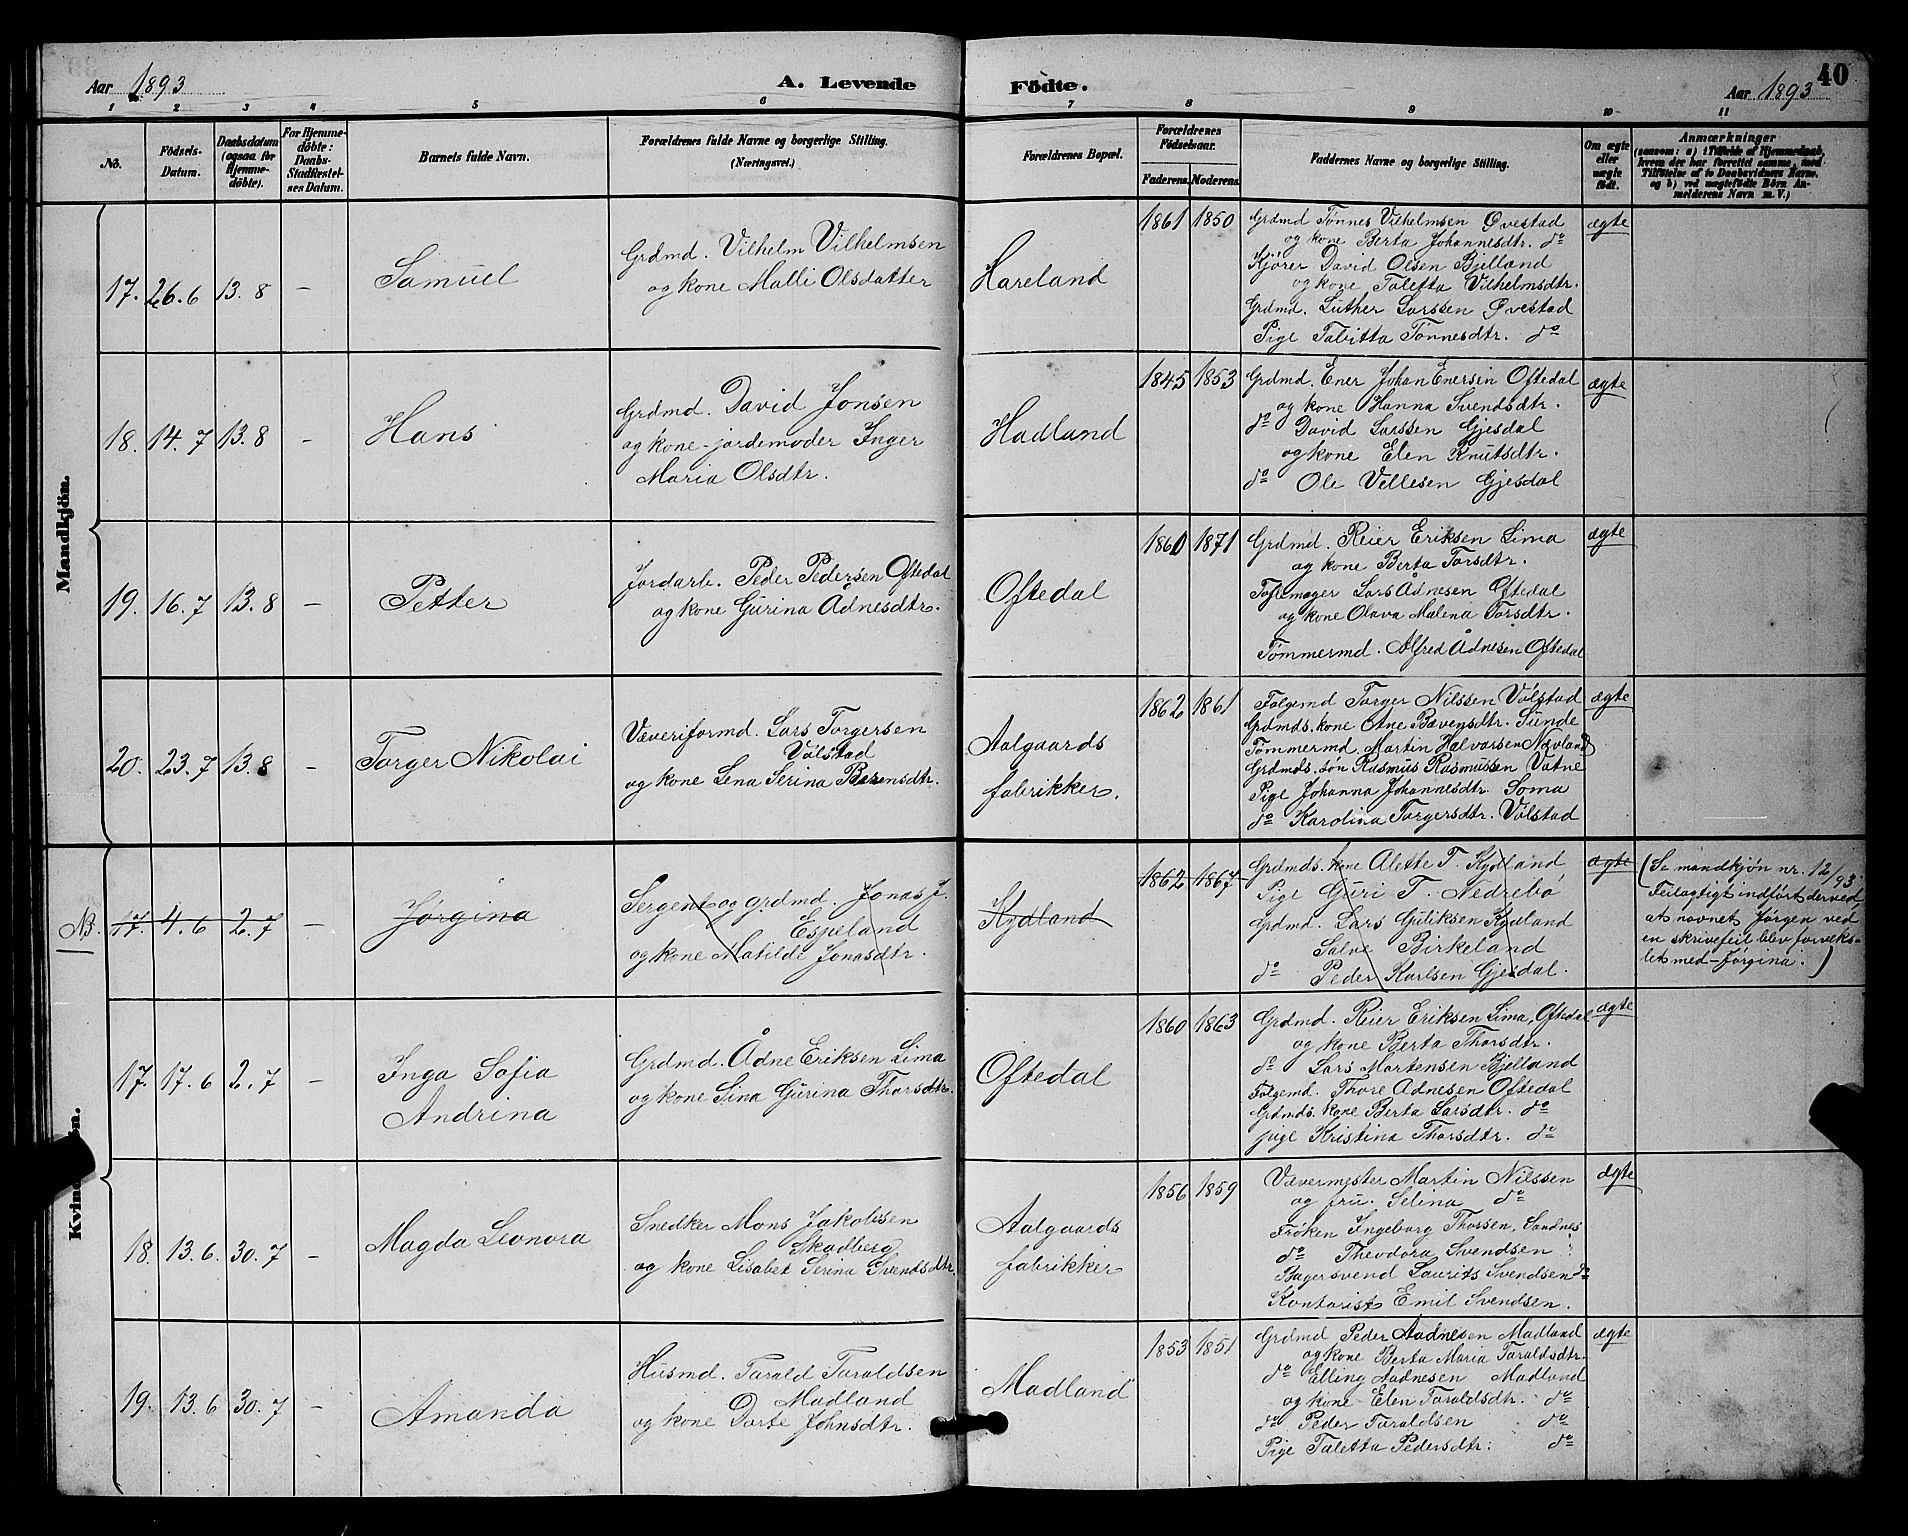 Aar 1893
A. Levende Födte.
Aar 1893
40
1 2 3 4 5 6 7 8 9 10 11
No.
Födsels-Datum.
Daabsdatum (ogsaa for Hjemme-döbte).
For Hjemme-döbte: Daabs-Stadfæstel-ses Datum.
Barnets fulde Navn.
Forældrenes fulde Navne og borgerlige Stilling.
(Næringsvei.)
Forældrenes Bopæl.
Forældrenes Födselsaar.
Faderens. Moderens.
Faddernes Navne og borgerlige Stilling.
Om ægte eller uægte födt.
Anmærkninger
(saasom: a) i Tilfælde af Hjemmedaab,
hvem der har forrettet samme, med
Tilföielse af to Daabsvidners Navne.
og b) ved uægtefödte Börn An-
melderens Navn m. V.)
Mandkjön.
17. 26.6 13.8 –
Samuel
Grdmd. Vilhelm Vilhelmsen
og kone Malli Olsdatter
Hareland
1861 1850
Grdmd Tønnes Vilhelmsen Øvestad
og kone Berta Johannesdtr. do
Kjører David Olsen Bjelland
og kone Taletta Vilhelmsdtr.
Grdmd. Luther Larssen Øvestad
Pige Tabitta Tønnesdtr. do
ægte
18. 14.7 13.8 –
Hans
Grdmd. David Jonsen
og kone - jordemoder Inger
Maria Olsdtr.
Hadland
1845 1853
Grdmd. Ener Johan Enersen Oftedal
og kone Hanna Svendsdtr.
do David Larssen Gjesdal
og kone Elen Knutsdtr.
do Ole Vellesen Gjesdal
ægte
19. 16.7 13.8 –
Petter
Jordarb. Peder Pedersen Oftedal
og kone Gurina Ådnesdtr.
Oftedal
1860 1871
Grdmd. Reier Eriksen Lima
og kone Berta Torsdtr.
Tøflemager Lars Ådnesen Oftedal
og kone Olava Malena Torsdtr.
Tømmermd. Alfred Ådnesen Oftedal
ægte
20. 23.7 13.8 –
Torger Nikolai
Væveriformd. Lars Torgersen
Vølstad
og kone Lena Serina Bærensdtr.
Aalgaards
fabrikker.
1862 1861
Følgemd Torger Nilssen Vølstad
Grdmds. kone Ane Bævensdtr. Sunde
Tømmermd. Martin Halvorsen Nævland
Grdmds. søn Rasmus Rasmussen Vatne
Pige Johanna Johannesdtr Soma
do Karolina Torgersdtr. Vølstad
ægte
Kvindkjön.
NB. 17. 4.6 2.7 –
Jørgina
Sergent og grdmd. Jonas J.
Espeland
og kone Matilde Jonasdtr.
Kydland
1862 1867
Grdmds. kone Alette T. Kydland
Pige Guri T. Nedrebø
Grdmd. Lars Guliksen Kydland
Salve Birkeland
do Peder Karlsen Gjesdal.
ægte
(Se mandkjøn nr. 12/93
Feilagtigt indført derved,
at navnet Jørgen ved
en skrivefeil blev forveks-
let med - Jørgina.)
17. 17.6 2.7 –
Inga Sofia
Andrina
Grdmd. Ådne Eriksen Lima
og kone Sina Gurina Thorsdtr.
Oftedal
1860 1863
Grdmd. Reier Eriksen Lima, Oftedal
og kone Berta Thorsdtr.
do Lars Mortensen Bjelland
Følgemd. Thore Ådnesen Oftedal
Grdmds. kone Berta Larsdtr. do
pige Kristina Thorsdtr. do
ægte
18. 13.6 30.7 –
Magda Leonora
Snedker Mons Jakobsen
Skadberg
og kone Lisabet Serina Svendsdtr.
Aalgaards
fabrikker
1856 1859
Vævermester Martin Nilssen
og fru. Selina do
Frøken Ingeborg Thorsen, Sandnes
do Theodora Svendsen
Bagersvend Laurits Svendsen do
Kontorist Emil Svendsen.
ægte
19. 13.6 30.7 –
Amanda
Husmd. Tarald Taraldsen
Madland
og kone Dorte Johnsdtr.
Madland
1853 1851
Grdmd Peder Aadnesen Madland
og kone Berta Maria Taraldsdtr.
do Elling Aadnesen Madland
og kone Elen Taraldsdtr. do
do Peder Taraldsen do
Pige Taletta Pedersdtr: do
ægte